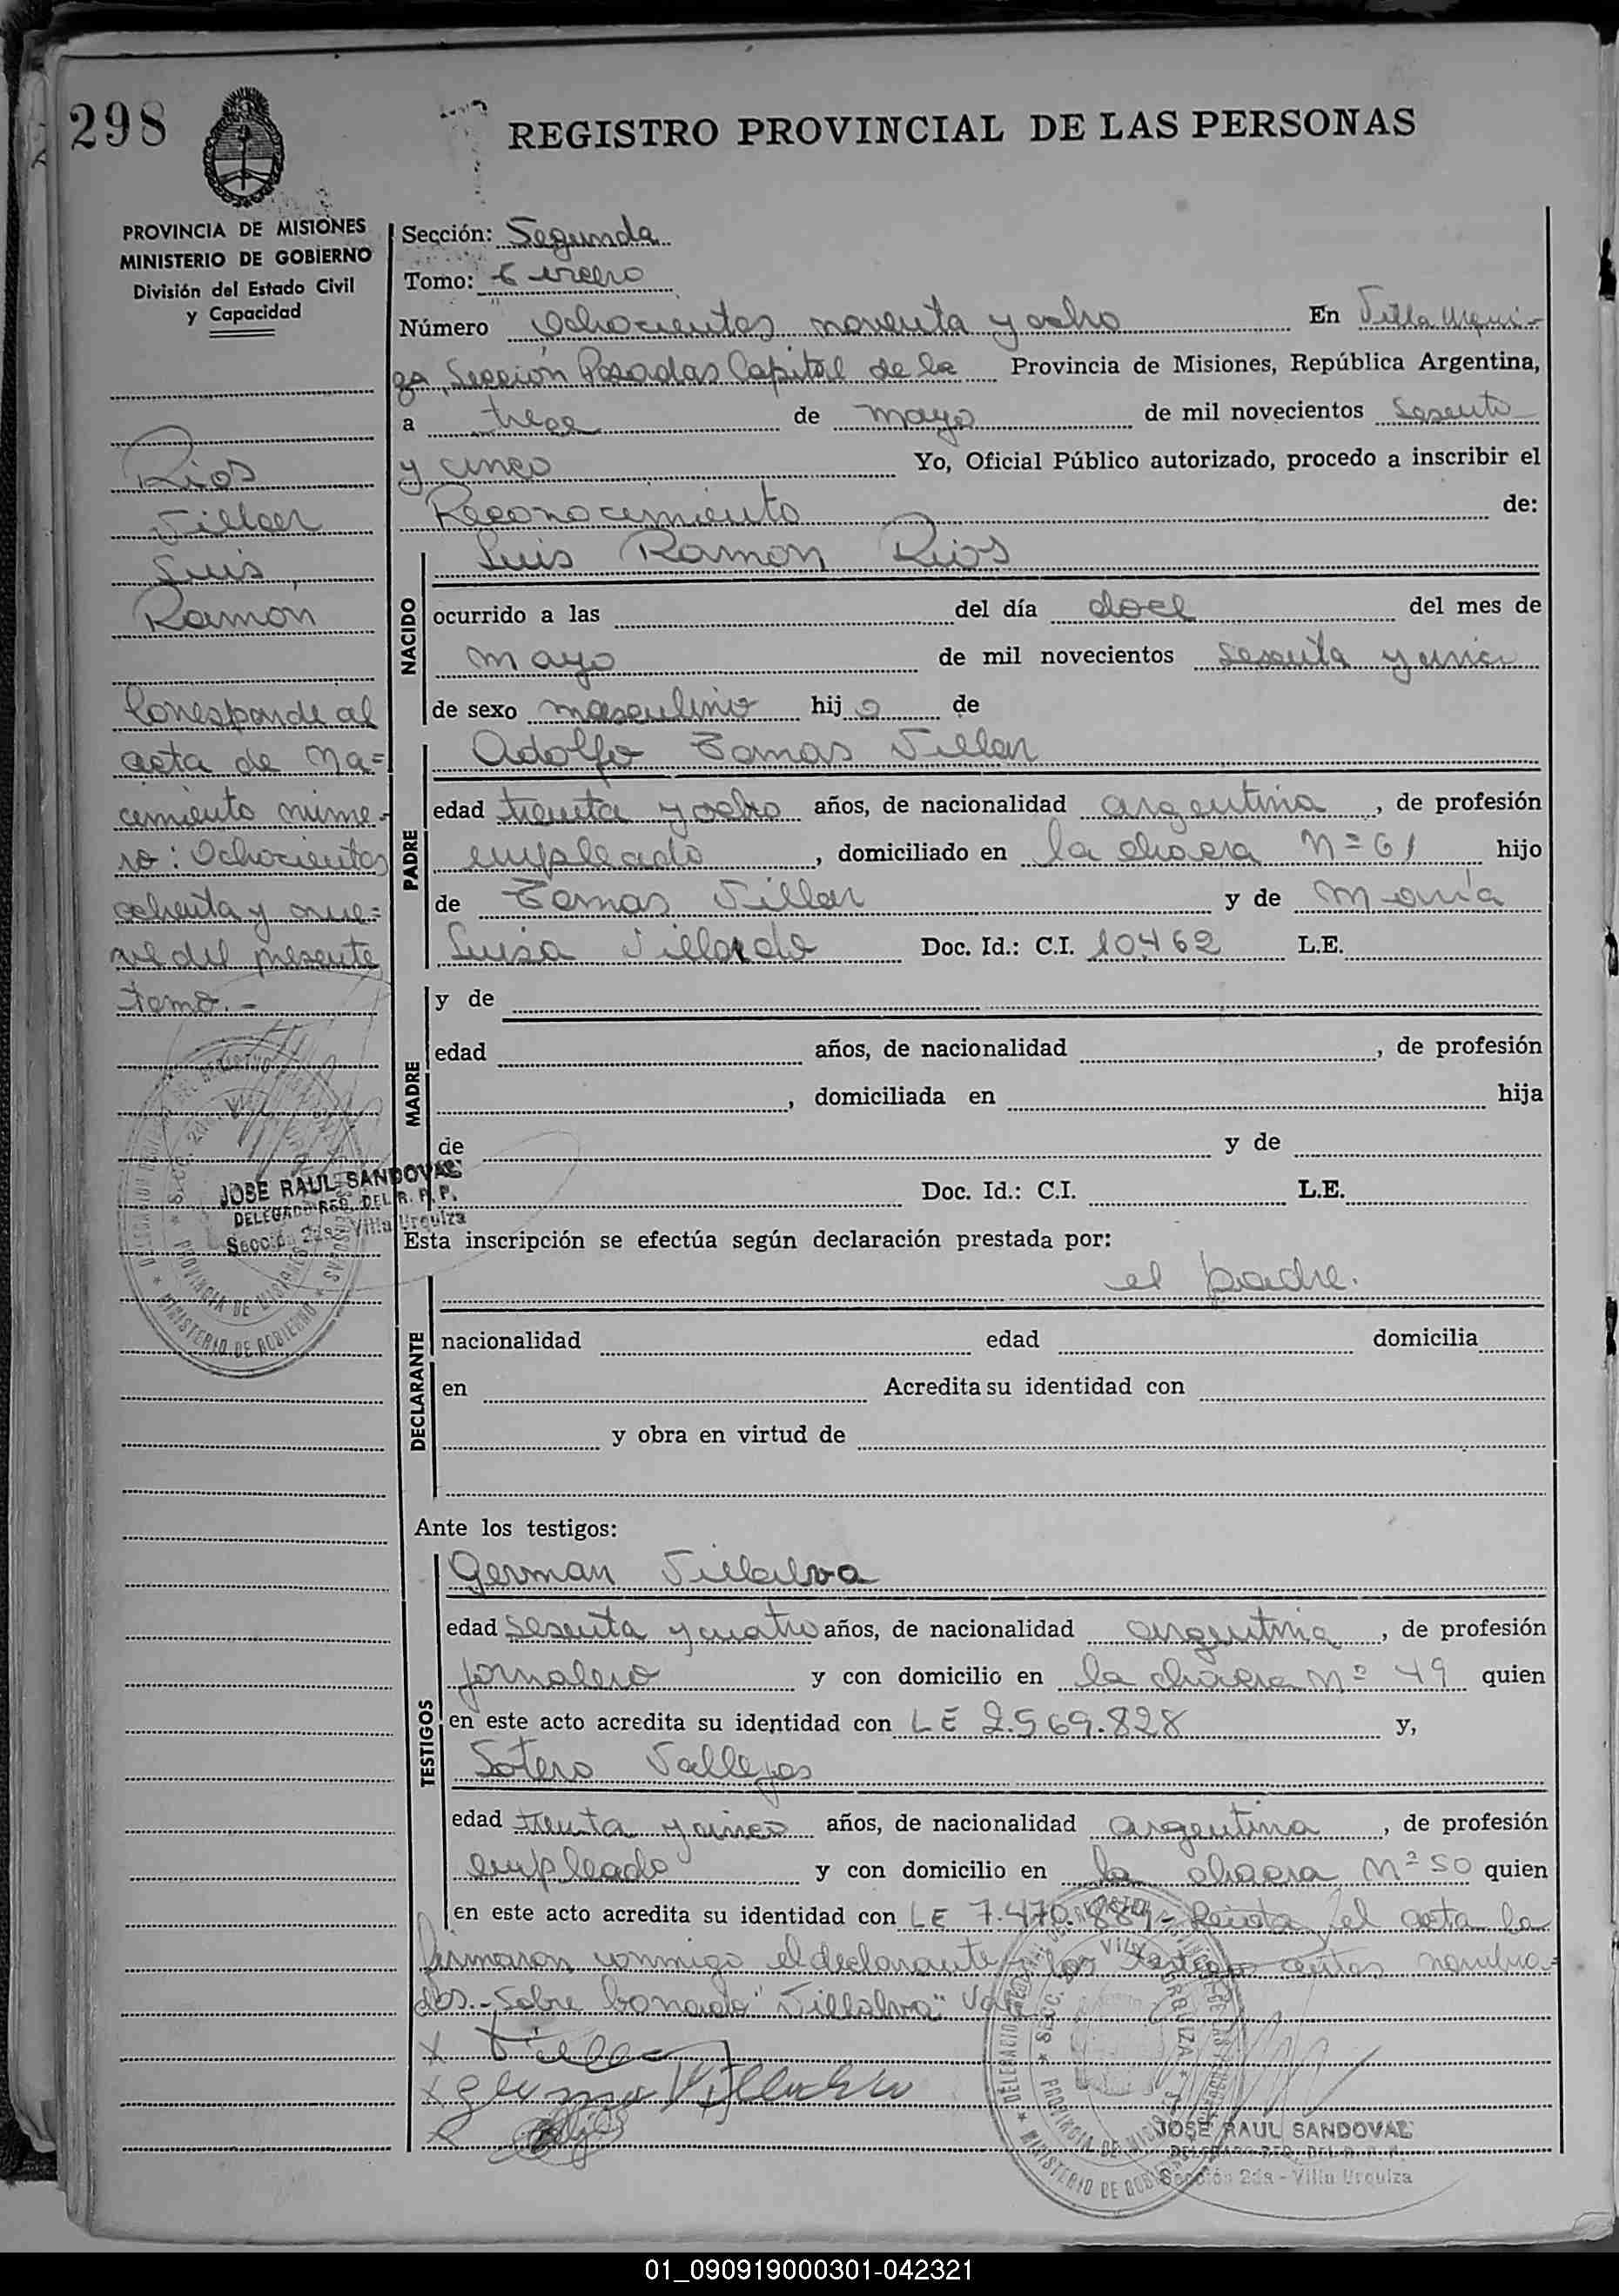 298
REGISTRO PROVINCIAL DE LAS PERSONAS
PROVINCIA DE MISIONES
MINISTERIO DE GOBIERNO
División del Estado Civil
y Capacidad
Rios
Villar
Luis
Ramón
Corresponde al
acta de na=
cimiento núme-
ro: Ochocientos
ochenta y nue=
ve del presente
tomo.-
JOSE RAUL SANDOVAL
DELEGADO REG. DEL R. P. P.
Sección 2da - Villa Urquiza
Sección: Segunda
Tomo:
Número Ochocientos noventa y ocho En Villa Urqui-
za, Sección Posadas Capital de la Provincia de Misiones, República Argentina,
a trece de mayo de mil novecientos sesenta
y cinco Yo, Oficial Público autorizado, procedo a inscribir el
Reconocimiento de:
NACIDO
Luis Ramon Rios
ocurrido a las del día doce del mes de
mayo de mil novecientos sesenta y uno
de sexo masculino hijo de
PADRE
Adolfo Tomas Villar
edad treinta y ocho años, de nacionalidad argentina, de profesión
empleado, domiciliado en la chacra Nº 61 hijo
de Tomas Villar y de María
Luisa Doc. Id.: C.I. 10.462 L.E.
MADRE
y de
edad años, de nacionalidad , de profesión
, domiciliada en hija
de y de
Doc. Id.: C.I. L.E.
Esta inscripción se efectúa según declaración prestada por:
el padre.
DECLARANTE
nacionalidad edad domicilia
en Acredita su identidad con
y obra en virtud de
Ante los testigos:
TESTIGOS
German Villalva
edad sesenta y cuatro años, de nacionalidad argentina, de profesión
jornalero y con domicilio en la chacra Nº 49 quien
en este acto acredita su identidad con LE 2.569.828 y,
Sotero Vallejos
edad treinta y cinco años, de nacionalidad argentina, de profesión
empleado y con domicilio en la chacra Nº 50 quien
en este acto acredita su identidad con LE 7.470.889- el acta la
firmaron conmigo el declarante y los testigos nombra=
dos.- Sobre "Villalva" Vale
JOSE RAUL SANDOVAL
DELEGADO REG. DEL R. P. P.
Sección 2da - Villa Urquiza
01_090919000301-042321